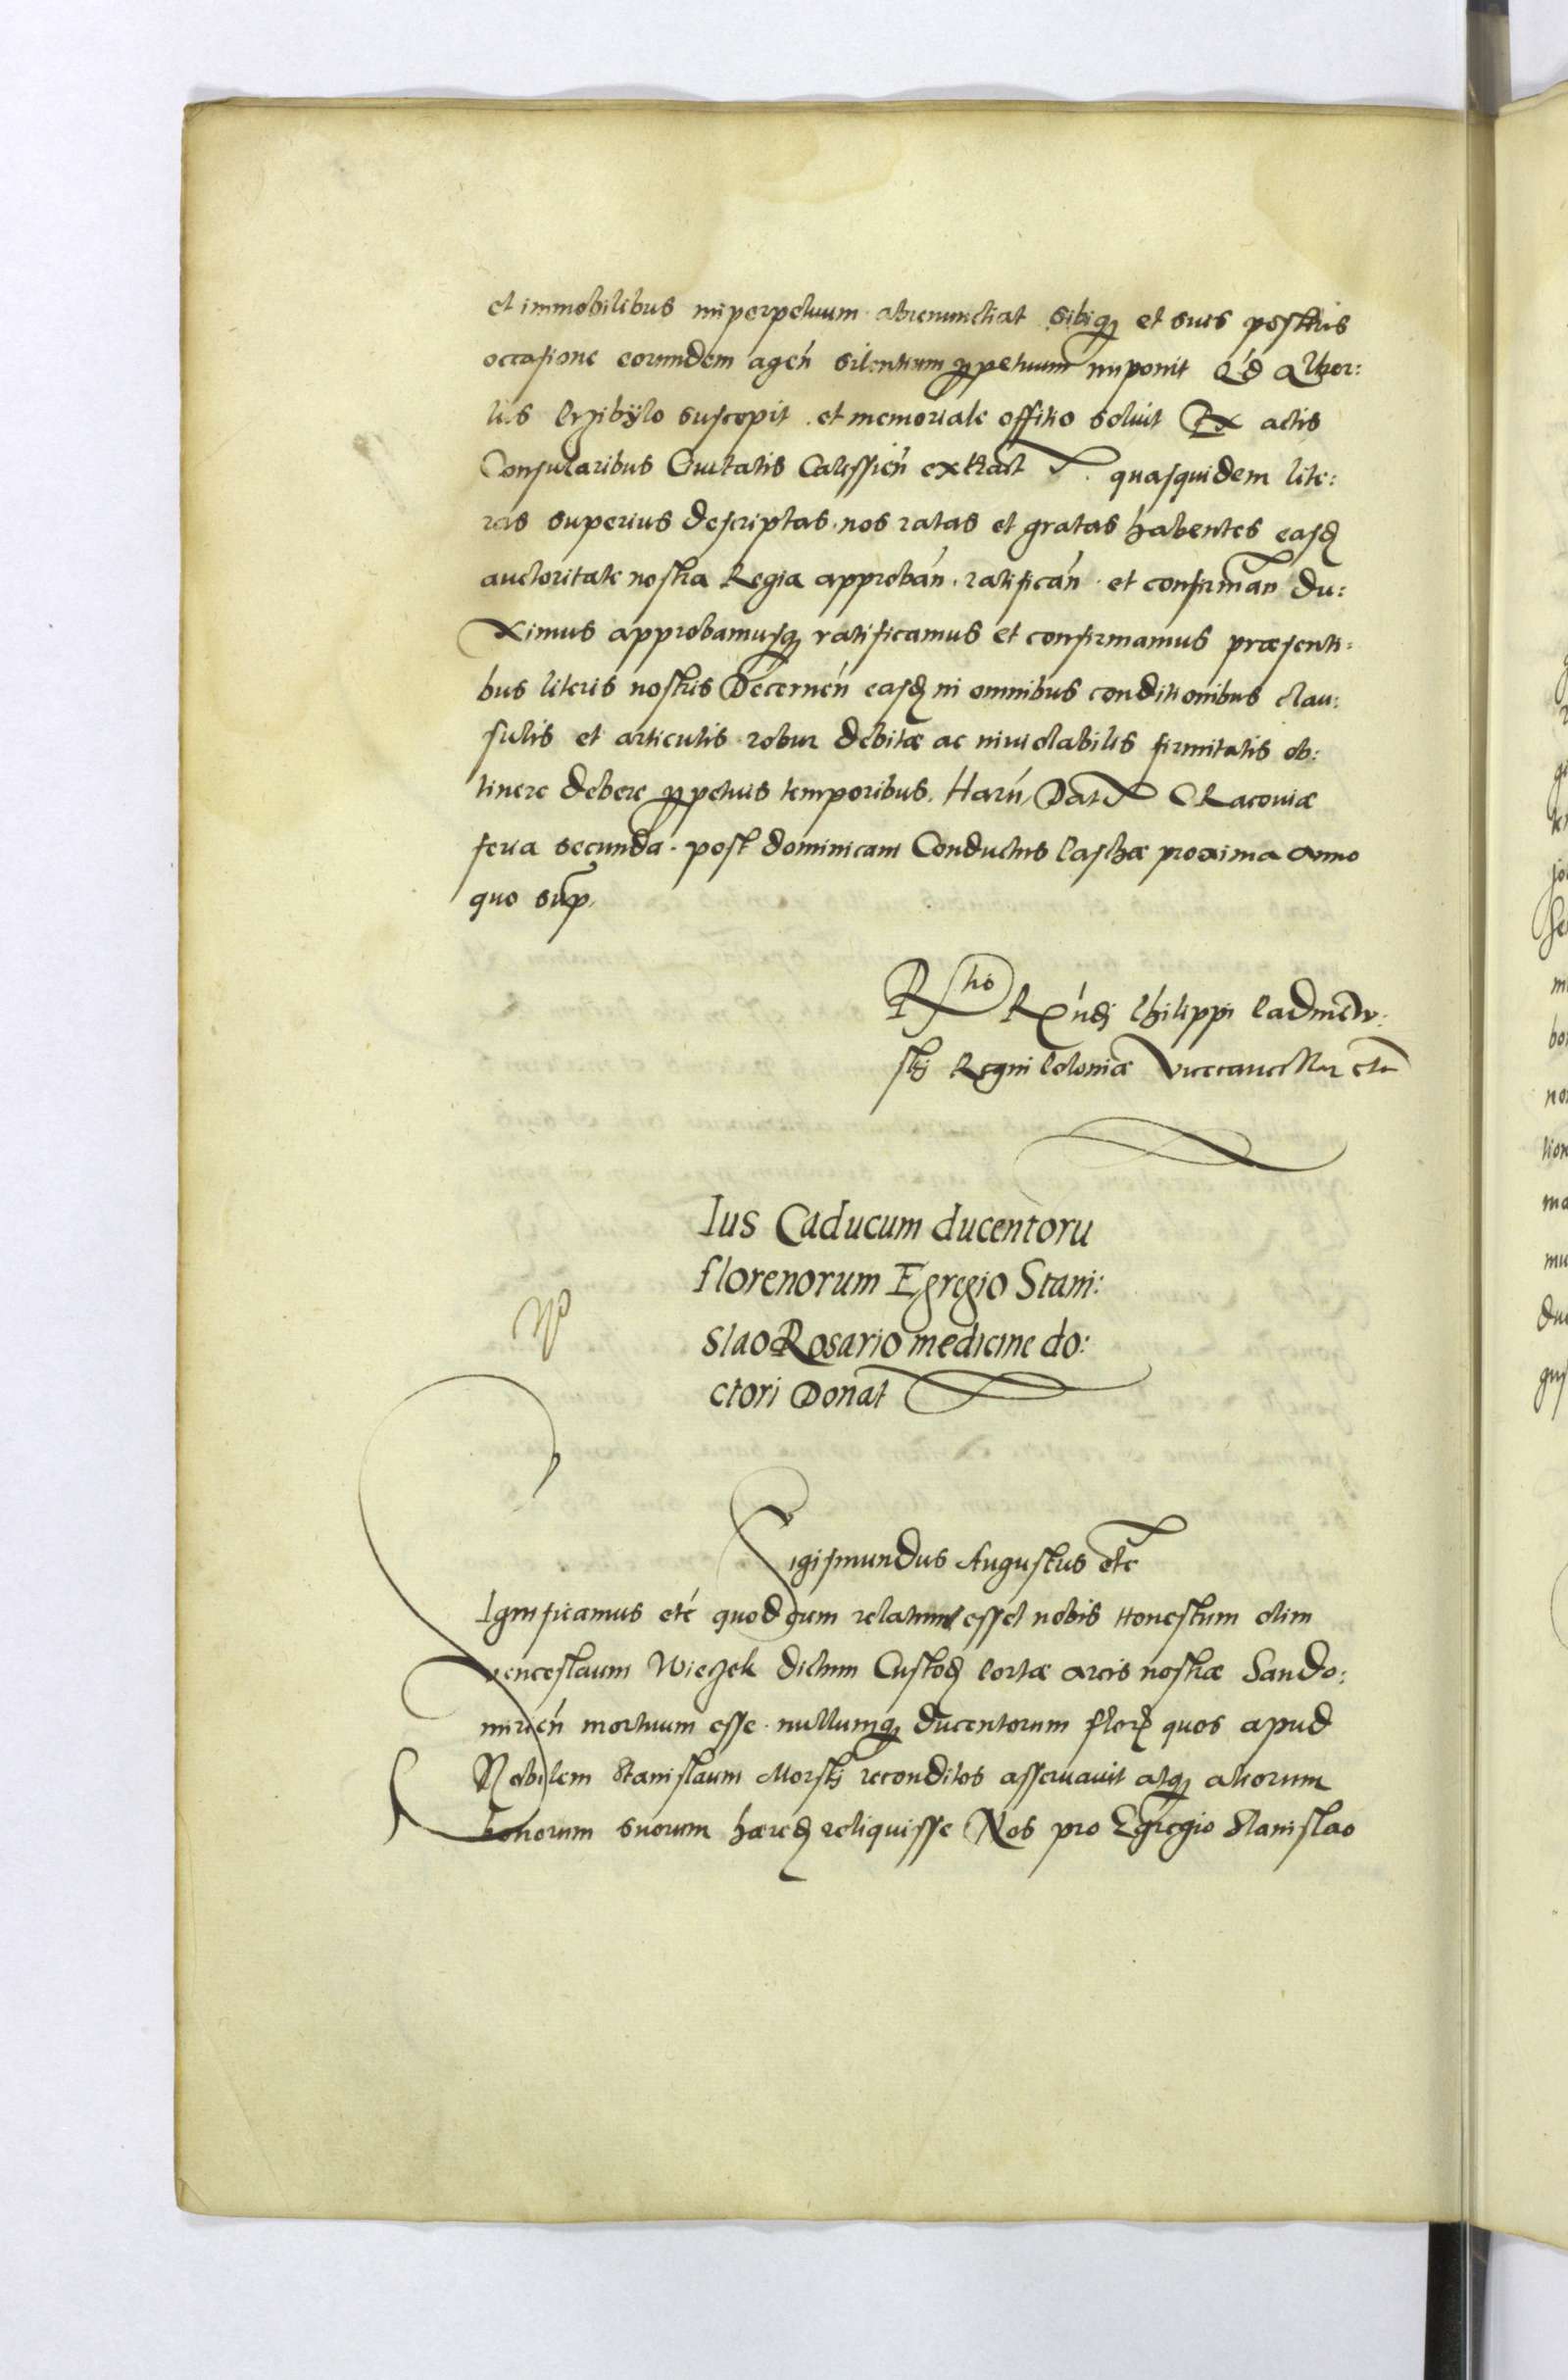 et immobilibus in perpetuum abrenunctiat sibiq3 et suis posteris
occasione eorundem agen̄ silentium ꝑpetuum imponit Q'd Alber:
tus Przibÿlo suscepit et memoriale offitio soluit Ex actis
Consularibus Ciuitatis Calissien̄ extract quasquidem lite:
ras superius descriptas nos ratas et gratas habentes easd
auctoritate nostra Regia approban̄ ratifican̄ et confirman̄ du:
ximus approbamusq3 ratificamus et confirmamus præsenti:
bus literis nostris Decernen̄ easd in omnibus conditionibus clau:
sulis et articulis robur debitæ ac inuiolabilis firmitatis ob:
tinere debere ꝑpetuis temporibus. Harū Dat CRacouiæ
feria secunda post dominicam Conductus Paschæ proxima anno
quo sup.
Rtio R'ndi Philippi Padnew:
skj Regni Poloniæ Vicecancellar etc
Ius Caducum ducentoru
florenorum Egregio Stani:
slao Rosario medicine do:
ctori Donat
Sigismundus Augustus etc
Ignificamus etć quod cum relatum esset nobis Honestum olim
Venceslaum Wiezek dictum Custod Portæ arcis nostræ Sando:
mirien̄ mortuum esse nullumq3 ducentorum flor quos apud
Nobilem Stanislaum Morskj reconditos asseruauit atq3 aliorum
bonorum suorum hæred reliquisse Nos pro Egregio Stanislao